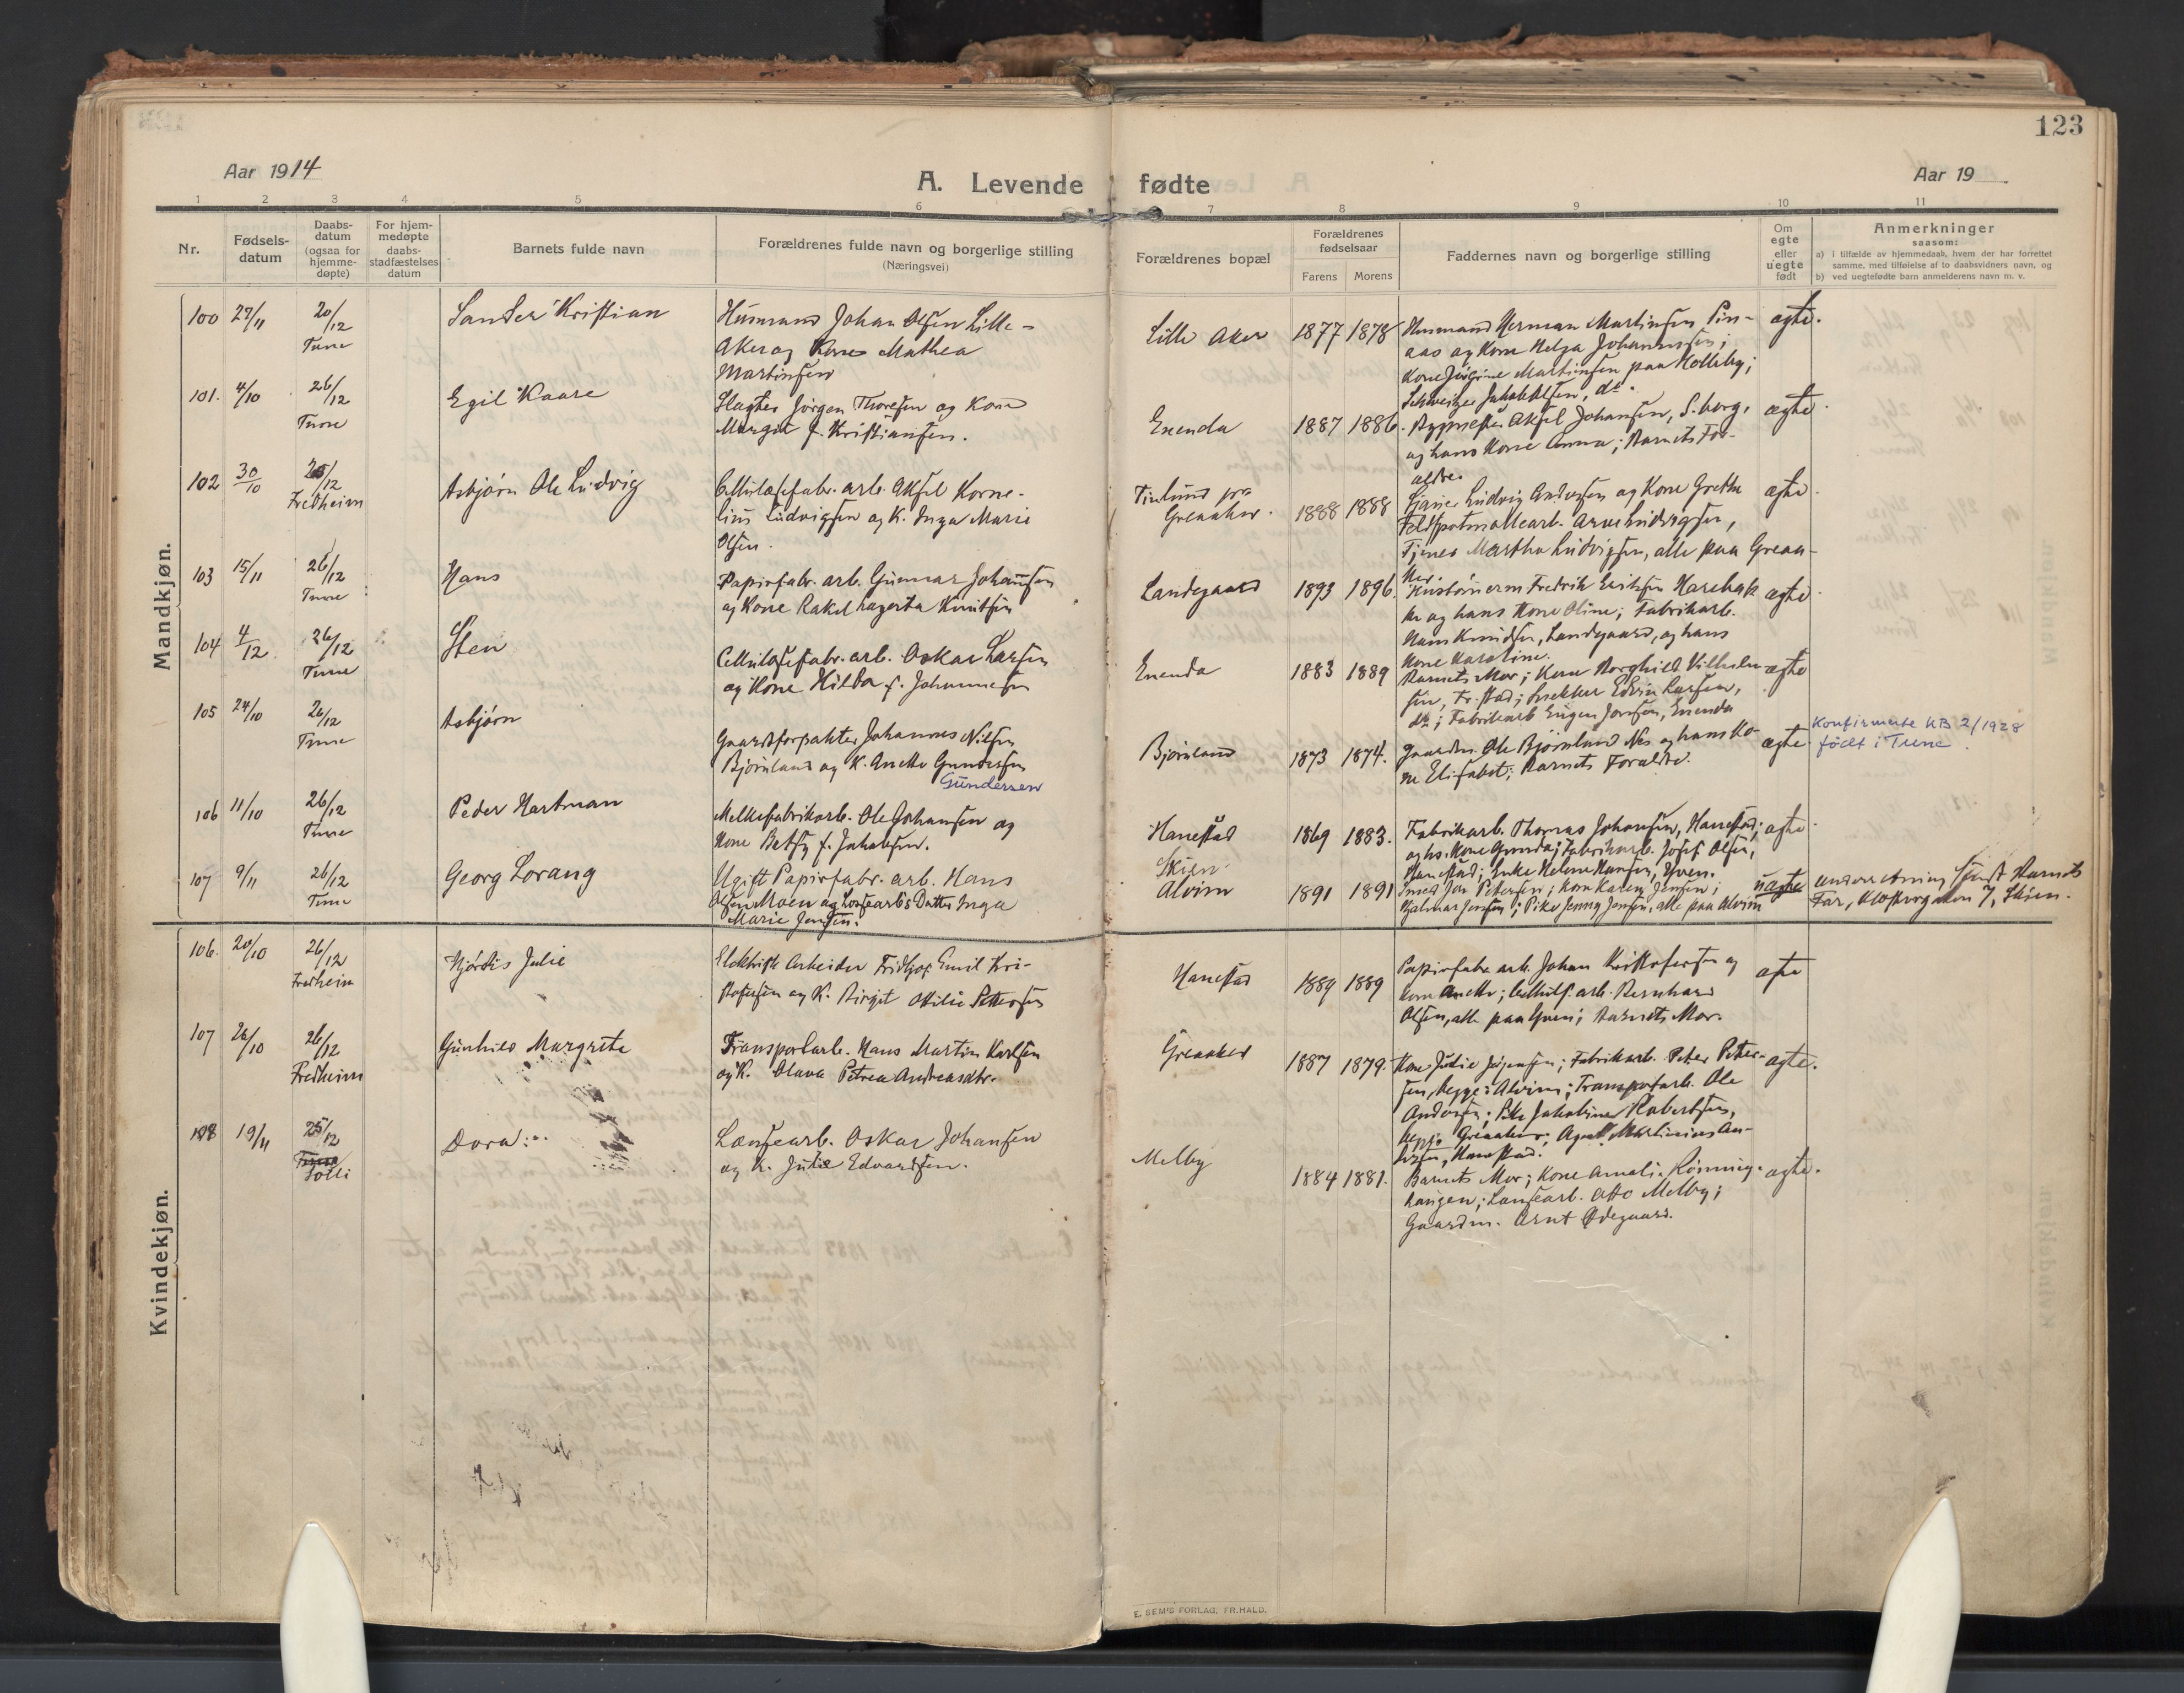 123
Aar 1914
A. Levende fødte
Aar 19
1 2 3 4 5 6 7 8 9 10 11
Nr.
Fødsels-
datum
Daabs-
datum
(ogsaa for
hjemme-
døpte)
For hjem-
medøpte
daabs-
stadfæstelses
datum
Barnets fulde navn
Forældrenes fulde navn og borgerlige stilling
(Næringsvei)
Forældrenes bopæl
Forældrenes
fødselsaar
Farens Morens
Faddernes navn og borgerlige stilling
Om
egte
eller
uegte
født
Anmerkninger
saasom:
a) i tilfælde av hjemmedaab, hvem der har forrettet
samme, med tilføielse af to daabsvidners navn, og
b) ved uegtefødte barn anmelderens navn m. v.
Mandkjøn.
100 27/11 20/12
Tune
Sander Kristian
Husmand Johan Olsen Lille-
Aker og Kone Mathea
Martinsen
Lille Aker 1877 1878
Husmand Herman Martinsen
aas og Kone Helga Johannessen;
Kone Jørgine Martinsen paa Holleby;
Schweitzer Jakob Olsen, do.
ægte.
101. 4/10 26/12
Tune
Egil Kaare
Slagter Jørgen Thoresen og Kone
Margit f. Kristiansen.
Enenda 1887 1886.
Aksel Johansen, S.borg,
og hans Kone Anna; Barnets For-
ældre.
ægte.
102 30/10 25/12
Fredheim
Asbjørn Ole Ludvig
Cellulosefabr. arb. Aksel Korne-
lius Ludvigsen og K. Inga Marie
Olsen.
Greaaker. 1888 1888
Ludvig Andersen og Kone Grethe
Feldspatmøllearb. Arne Ludvigsen,
Tjener Martha Ludvigsen, alle paa Greaa-
ker.
ægte.
103 15/11 26/12
Tune
Hans
Papirfabr. arb. Gunnar Johansen
og Kone Rakel Lagerta Knutsen
Landegaard 1893 1896.
Fredrik Eriksen
og hans Kone Oline; Fabrikarb.
Hans Knudsen, Landegaard, og hans
Kone Karoline.
ægte.
104 4/12. 26/12
Tune
Sten
Cellulosefabr. arb. Oskar Larsen
og Kone Hilda f. Johannesen
Enenda 1883 1889
Barnets Mor; Kone Borghild Vilhelm-
sen, Fr.stad; Snekker Edvin Larsen,
do; Fabrikarb Eugen Jonsen, Enenda
ægte
105 24/10 26/12
Tune
Asbjørn
Gaardforpakter Johannes Nilsen
Bjørnland og K. Anette Gundersen
Gundersen
Bjørnland 1873 1874.
Gaardbr. Ole Bjørnland Nes og hans Ko-
ne Elisabet; Barnets Forældre.
ægte
Konfirmerte KB 2/1928
født i Tune.
106 11/10 26/12
Tune
Peder Hartman
Melkefabrikarb. Ole Johansen og
Kone Betsy f. Jakobsen.
Hanestad 1869 1883.
Fabrikarb. Thomas Johansen, Hanestad;
og hs. Kone Gunda; Fabrikarb. Josef Olsen,
Hanestad; Enke Helene Hansen, Yven.
ægte.
107 9/11 26/12
Tune
Georg Lorang
Ugift Papirfabr. arb. Hans
Olsen Moen og Losearb's Datter Inga
Marie Jensen.
Skien
Alvim 1891 1891
Smed Jon Pettersen; Kone Karen Jensen;
Hjalmar Jensen; Pike Jenny Jensen, alle paa Alvim
uægte
Underretning sendt Barnets
Far, 7, Skien.
Kvindekjøn.
106. 20/10 26/12
Fredheim
Hjørdis Julie
Elektrisk Arbeider Fridtjof Emil Kri-
stofersen og K. Birgit Otilie Pettersen
Hanestad 1889 1889
Papirfabr. arb. Johan Kristofersen og
Kone Anette; Cellulf. arb. Bernhard
Olsen, alle paa Yven; Barnets Mor.
ægte
107 26/10 26/12
Fredheim
Gunhild Margrete
Transportarb. Hans Martin Karlsen
og K. Olava Petrea Andreasdtr.
Greaaker 1887 1879.
Kone Julie Jørgensen; Fabrikarb. Peter Petter-
sen, begge: Alvim; Transportarb. Ole
Andersen; Pike Jakobine Robertsen,
begge Greaaker; Agent Martinius An-
dersen, Hanestad.
ægte.
108 19/11 25/12
Tune
Solli
Dora.
Lænsearb. Oskar Johansen
og K. Julie Edvardsen.
Melby 1884 1881.
Barnets Mor; Kone Amalie Rønning-
haugen; Lænsearb. Otto Melby;
Gaardm. Arnt Ødegaard.
ægte.
E. SEM'S FORLAG, FR.HALD.